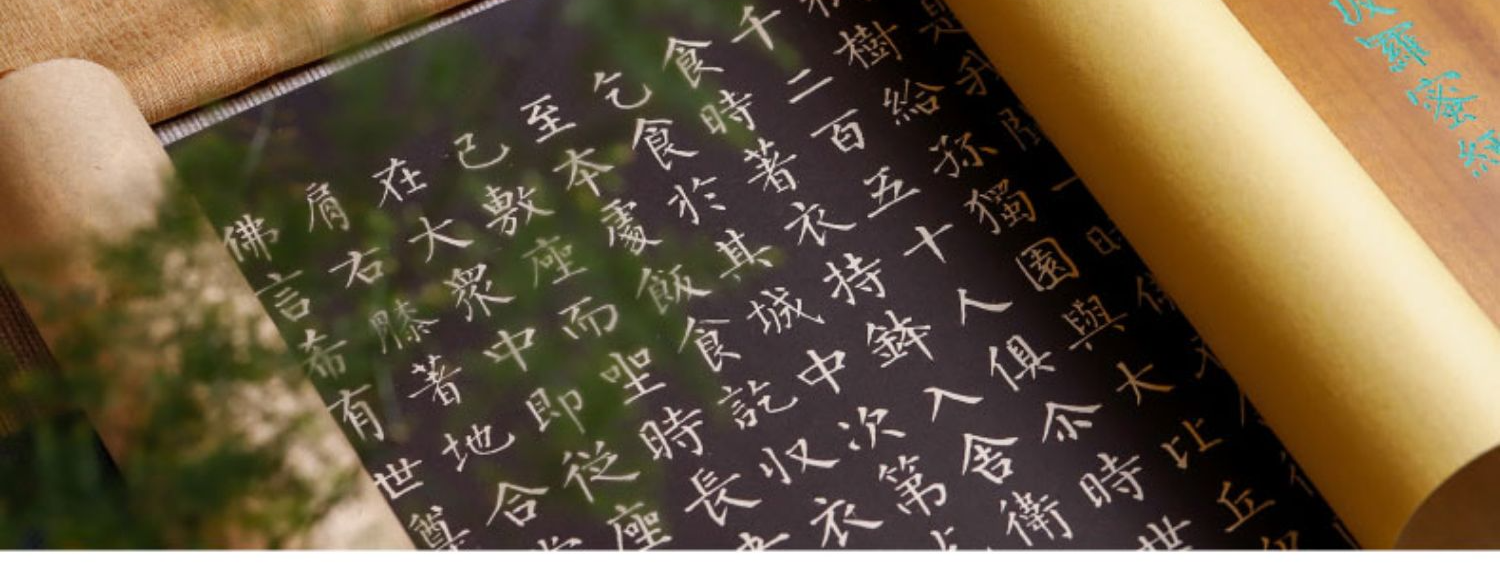 波羅蜜經
是我聞一時佛
樹給孤獨園與大比丘
千二百五十人俱尒時世
食時著衣持鉢入舍衛
乞食於其城中次第
至本處飯食訖収衣
已敷座而坐時長
在大衆中即従座
肩右膝著地合
佛言希有世尊